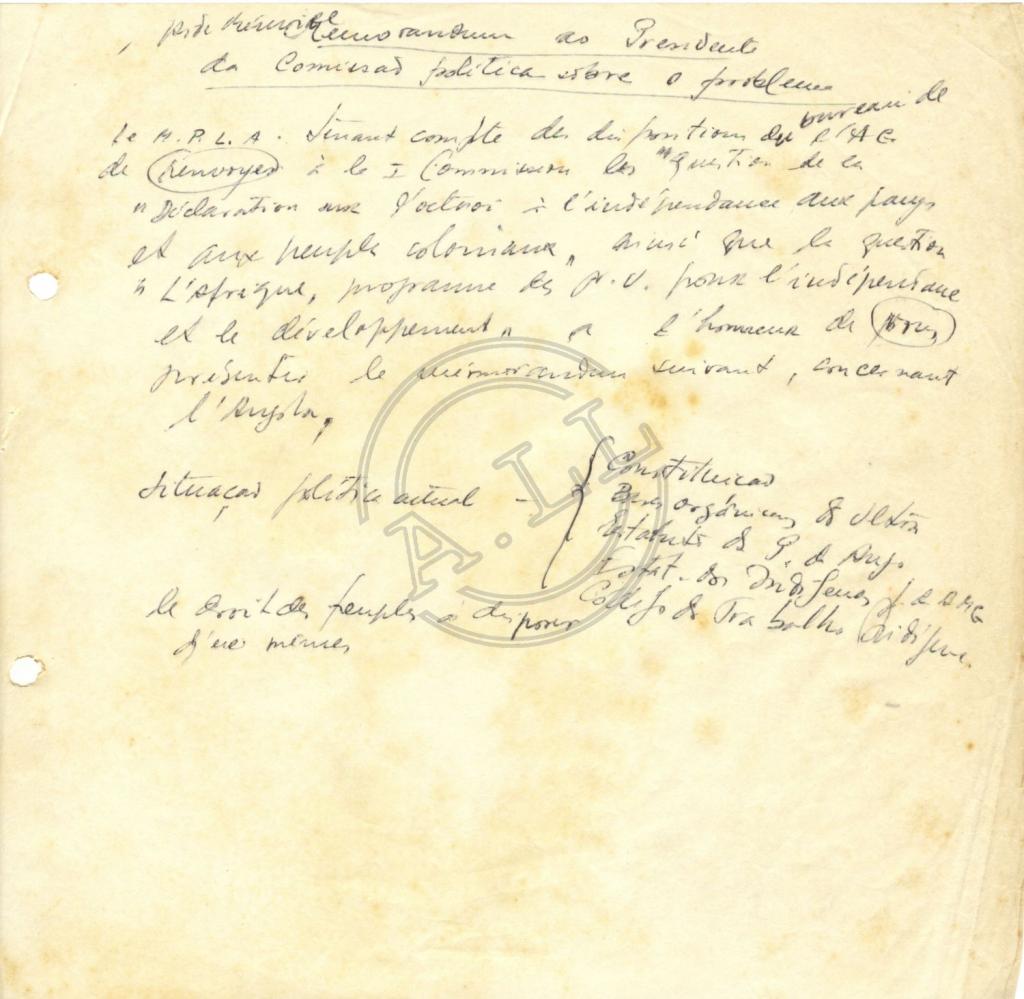 Memorandum ao Presidente
da Comissão política sôbre o problema
Le M.P.L.A. tenant compte des dispositions du bureau de l'AG
de Renvoyer à la I Commission les question de la
"Déclaration sur l'octroi à l'indépendance aux pays
et aux peuples coloniaux", ainsi que la question
"L'Afrique, programme des N.U. pour l'indépendance
et le développement" a l'honneur de vous
présenter le mémorandum suivant, concernant
l'Angola,
Situação política actual - Constituição
Bases orgânicas do Ultra
Estatuto da P. de Ang.
Estat. dos Indígenas
Código do Trabalho Indígena
le droit des peuples à disposer
d'eux mêmes
A.L.